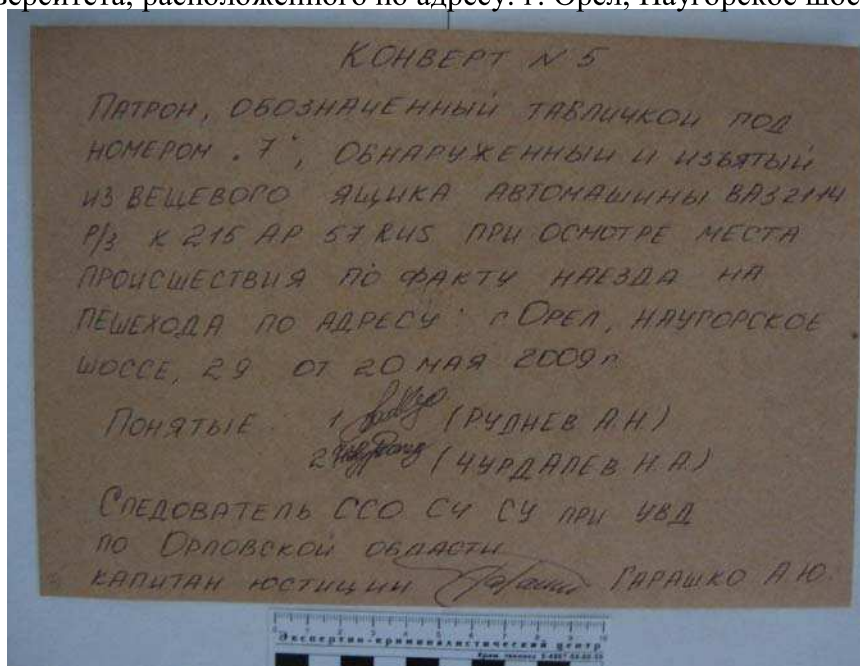 верситета, расположенного по адресу: г. Орел, Наугорское шос
КОНВЕРТ N 5
ПАТРОН, ОБОЗНАЧЕННЫЙ ТАБЛИЧКОЙ ПОД
НОМЕРОМ „7“, ОБНАРУЖЕННЫЙ И ИЗЪЯТЫЙ
ИЗ ВЕЩЕВОГО ЯЩИКА АВТОМАШИНЫ ВАЗ 2114
Р/З К 215 АР 57 RUS ПРИ ОСМОТРЕ МЕСТА
ПРОИСШЕСТВИЯ ПО ФАКТУ НАЕЗДА НА
ПЕШЕХОДА ПО АДРЕСУ: г. ОРЕЛ, НАУГОРСКОЕ
ШОССЕ, 29 ОТ 20 МАЯ 2009 г.
ПОНЯТЫЕ 1 (РУДНЕВ А.Н.)
2 (ЧУРДАЛЕВ Н.А.)
СЛЕДОВАТЕЛЬ ССО СЧ СУ ПРИ УВД
ПО ОРЛОВСКОЙ ОБЛАСТИ
КАПИТАН ЮСТИЦИИ ГАРАШКО А.Ю.
1 2 3 4 5 6 7 8 9 10
Экспертно-криминалистический центр